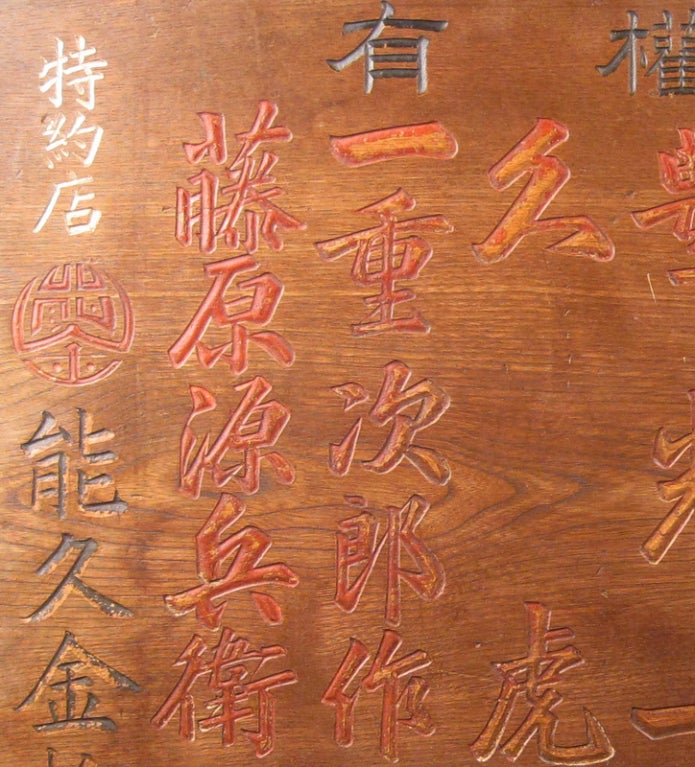 權有
久虎
一重次郎作
藤原源兵衛
特約店
能久金